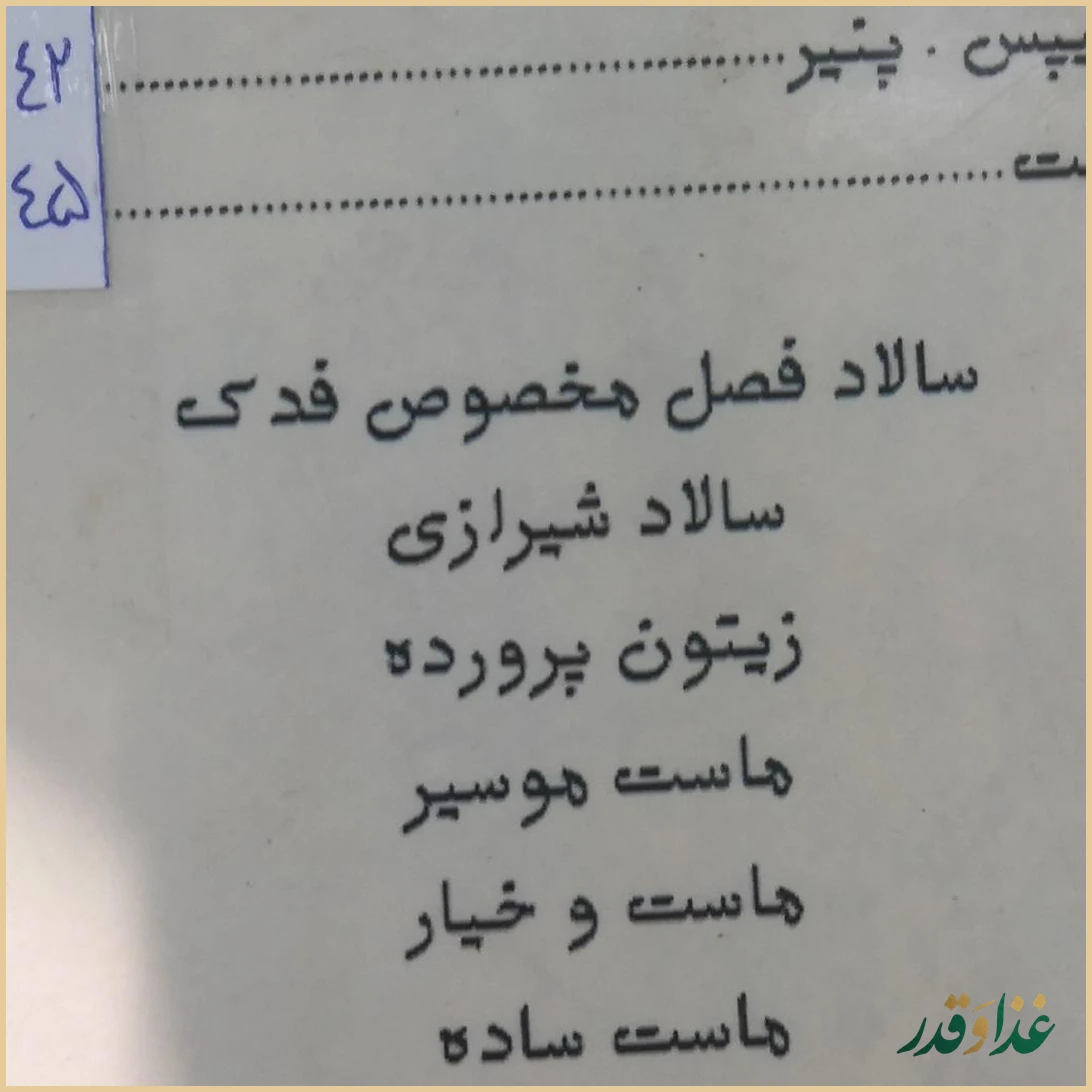 پنیر ........ ۴۲
........ ۴۵
سالاد فصل مخصوص فدک
سالاد شیرازی
زیتون پرورده
ماست موسیر
ماست و خیار
ماست ساده
غذا و قدر